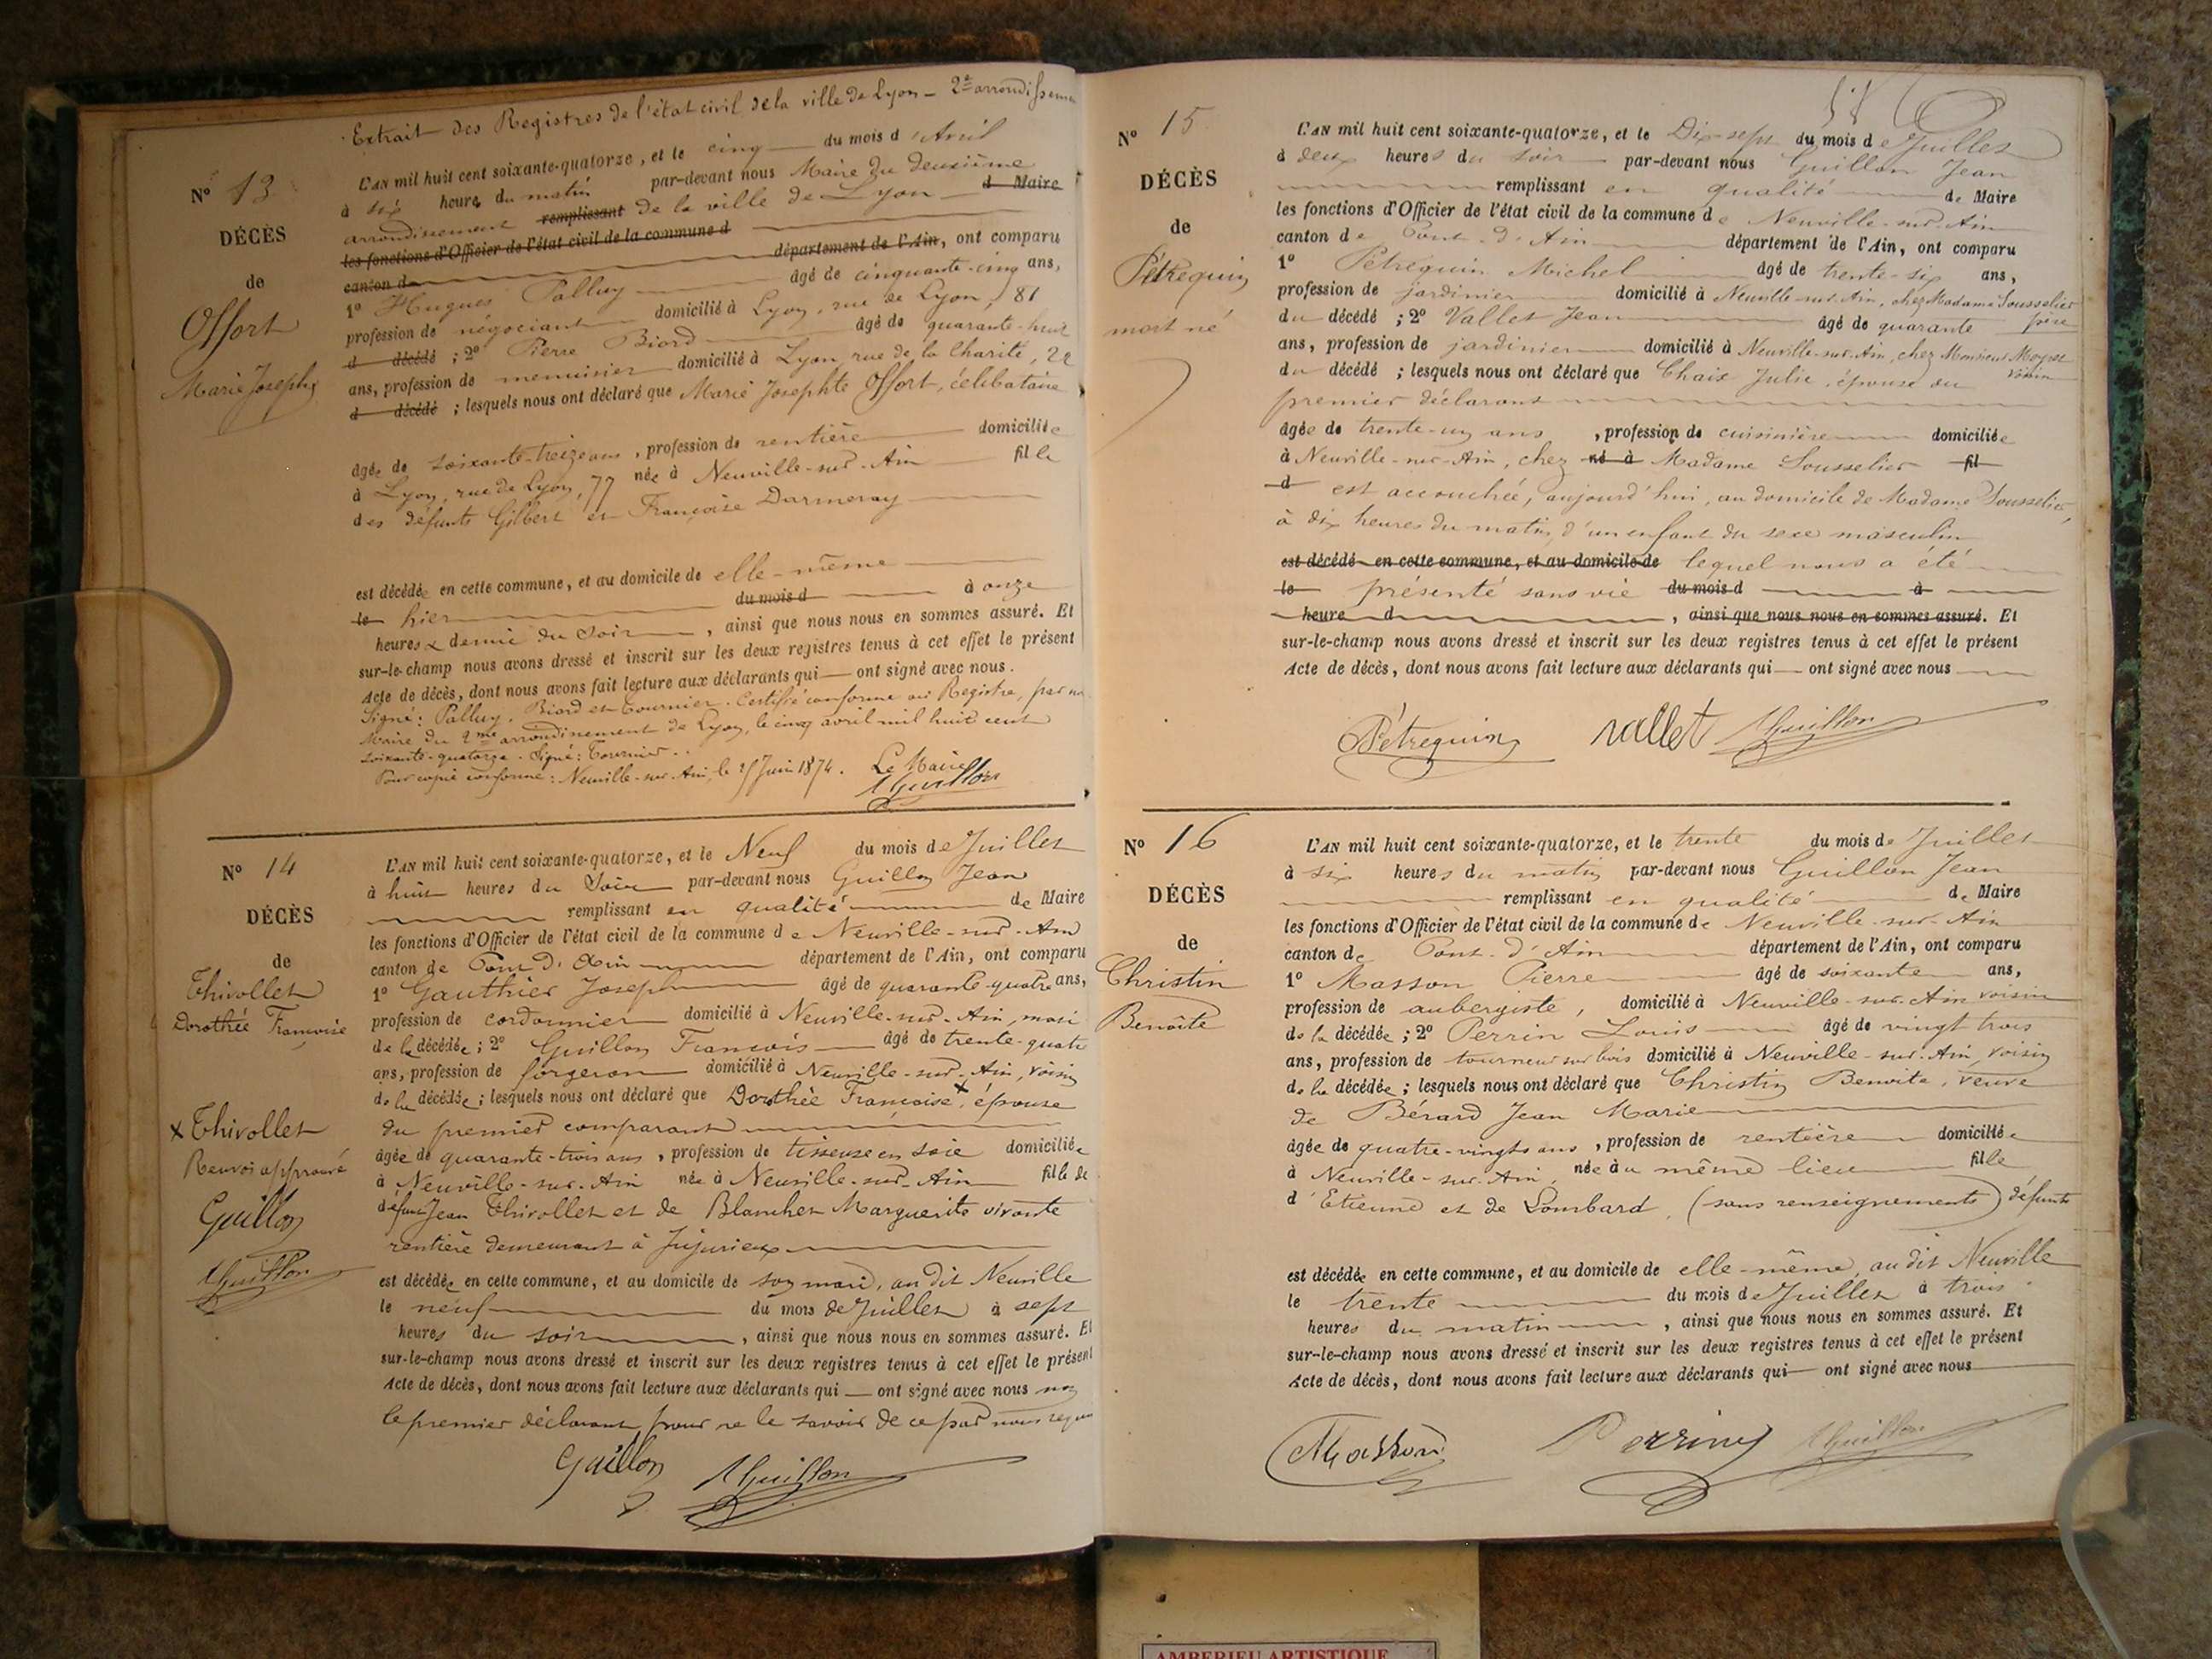 Extrait des Registres de l'état civil de la ville de Lyon - 2e arrondissemen
N° 13
DÉCÈS
de
Offort
Marie Josephte
L'AN mil huit cent soixante-quatorze, et le cinq du mois d'Avril
à six heures du matin par-devant nous Maire du deuxième
arrondissement remplissant de la ville de Lyon d Maire
les fonctions d'Officier de l'état civil de la commune d
canton d département de l'Ain, ont comparu
1° Hugues Palluy âgé de cinquante-cinq ans,
profession de négociant domicilié à Lyon, rue de Lyon, 81
d décédé ; 2° Pierre Biord âgé de quarante-huit
ans, profession de menuisier domicilié à Lyon rue de la Charité, 22
d décédé ; lesquels nous ont déclaré que Marie Josephte Offort, célibataire
âgée de soixante-treize ans, profession de rentière domiciliée
à Lyon, rue de Lyon, 77 née à Neuville-sur-Ain fille
des défunts Gilbert et Françoise Darmeray
est décédée en cette commune, et au domicile de elle-même
le hier du mois d à onze
heures & demie du soir, ainsi que nous nous en sommes assuré. Et
sur-le-champ nous avons dressé et inscrit sur les deux registres tenus à cet effet le présent
Acte de décès, dont nous avons fait lecture aux déclarants qui ont signé avec nous.
Signé : Palluy, Biord et Tournier. Certifié conforme au Registre, par no
Maire du 2me arrondissement de Lyon, le cinq avril mil huit cent
soixante-quatorze. Signé : Tournier.
Pour copie conforme : Neuville-sur-Ain, le Juin 1874. Le Maire
JGuillon
N° 14
DÉCÈS
de
Thivollet
Dorothée Françoise
x Thivollet
Renvoi approuvé
Guillon
JGuillon
L'AN mil huit cent soixante-quatorze, et le Neuf du mois de Juillet
à huit heures du Soir par-devant nous Guillon Jean
remplissant en qualité de Maire
les fonctions d'Officier de l'état civil de la commune de Neuville-sur-Ain
canton de Pont d'Ain département de l'Ain, ont comparu
1° Gauthier Joseph âgé de quarante-quatre ans,
profession de cordonnier domicilié à Neuville-sur-Ain, mari
de la décédée ; 2° Guillon François âgé de trente-quatre
ans, profession de forgeron domicilié à Neuville-sur-Ain, voisin
de la décédée ; lesquels nous ont déclaré que Dorothée Françoise x, épouse
du premier comparant
âgée de quarante-trois ans, profession de tisseuse en soie domiciliée
à Neuville-sur-Ain née à Neuville-sur-Ain fille de
défunt Jean Thivollet et de Blanchet Marguerite vivante
rentière demeurant à Jujurieux
est décédée en cette commune, et au domicile de son mari, au dit Neuville
le neuf du mois de Juillet à sept
heures du soir, ainsi que nous nous en sommes assuré. Et
sur-le-champ nous avons dressé et inscrit sur les deux registres tenus à cet effet le présent
Acte de décès, dont nous avons fait lecture aux déclarants qui ont signé avec nous non
le premier déclarant pour ne le savoir de ce par nous requis
Guillon JGuillon
N° 15
DÉCÈS
de
Pétrequin
mort né
L'AN mil huit cent soixante-quatorze, et le Dix-sept du mois de Juillet
à deux heures du soir par-devant nous Guillon Jean
remplissant en qualité de Maire
les fonctions d'Officier de l'état civil de la commune de Neuville-sur-Ain
canton de Pont-d'Ain département de l'Ain, ont comparu
1° Pétrequin Michel âgé de trente-six ans,
profession de jardinier domicilié à Neuville-sur-Ain, chez Madame Sousselier
père
du décédé ; 2° Vallet Jean âgé de quarante
ans, profession de jardinier domicilié à Neuville-sur-Ain, chez Monsieur
voisin
du décédé ; lesquels nous ont déclaré que Chaix Julie, épouse du
premier déclarant
âgée de trente-un ans, profession de cuisinière domiciliée
à Neuville-sur-Ain, chez né à Madame Sousselier fil
d est accouchée, aujourd'hui, au domicile de Madame Sousselier,
à dix heures du matin, d'un enfant du sexe masculin
est décédé en cette commune, et au domicile de lequel nous a été
le présenté sans vie du mois d à
heure d, ainsi que nous nous en sommes assuré. Et
sur-le-champ nous avons dressé et inscrit sur les deux registres tenus à cet effet le présent
Acte de décès, dont nous avons fait lecture aux déclarants qui ont signé avec nous
Pétrequin vallet JGuillon
N° 16
DÉCÈS
de
Christin
Benoîte
L'AN mil huit cent soixante-quatorze, et le trente du mois de Juillet
à six heures du matin par-devant nous Guillon Jean
remplissant en qualité de Maire
les fonctions d'Officier de l'état civil de la commune de Neuville-sur-Ain
canton de Pont-d'Ain département de l'Ain, ont comparu
1° Masson Pierre âgé de soixante ans,
profession de aubergiste, domicilié à Neuville-sur-Ain voisin
de la décédée ; 2° Perrin Louis âgé de vingt trois
ans, profession de tourneur sur bois domicilié à Neuville-sur-Ain, voisin
de la décédée ; lesquels nous ont déclaré que Christin Benoite, veuve
de Bérard Jean Marie
âgée de quatre-vingts ans, profession de rentière domiciliée
à Neuville-sur-Ain, née au même lieu fille
d'Etienne et de Lombard, (sans renseignements) défunts
est décédée en cette commune, et au domicile de elle-même, au dit Neuville
le trente du mois de Juillet à trois
heures du matin, ainsi que nous nous en sommes assuré. Et
sur-le-champ nous avons dressé et inscrit sur les deux registres tenus à cet effet le présent
Acte de décès, dont nous avons fait lecture aux déclarants qui ont signé avec nous
Masson Perrin JGuillon
AMBERIEU ARTISTIQUE